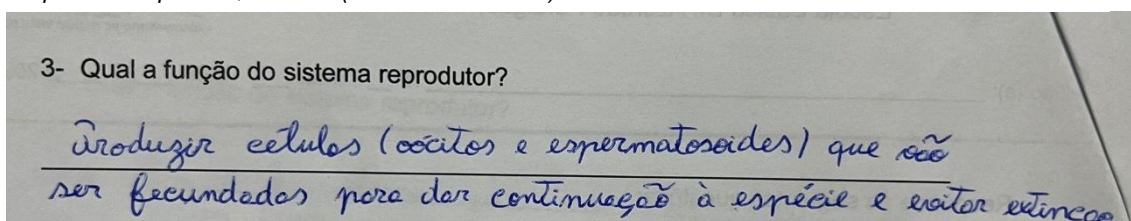 3- Qual a função do sistema reprodutor?
Produzir células (oócitos e espermatosoides) que vão
ser fecundadas para dar continuação à espécie e evitar extinção